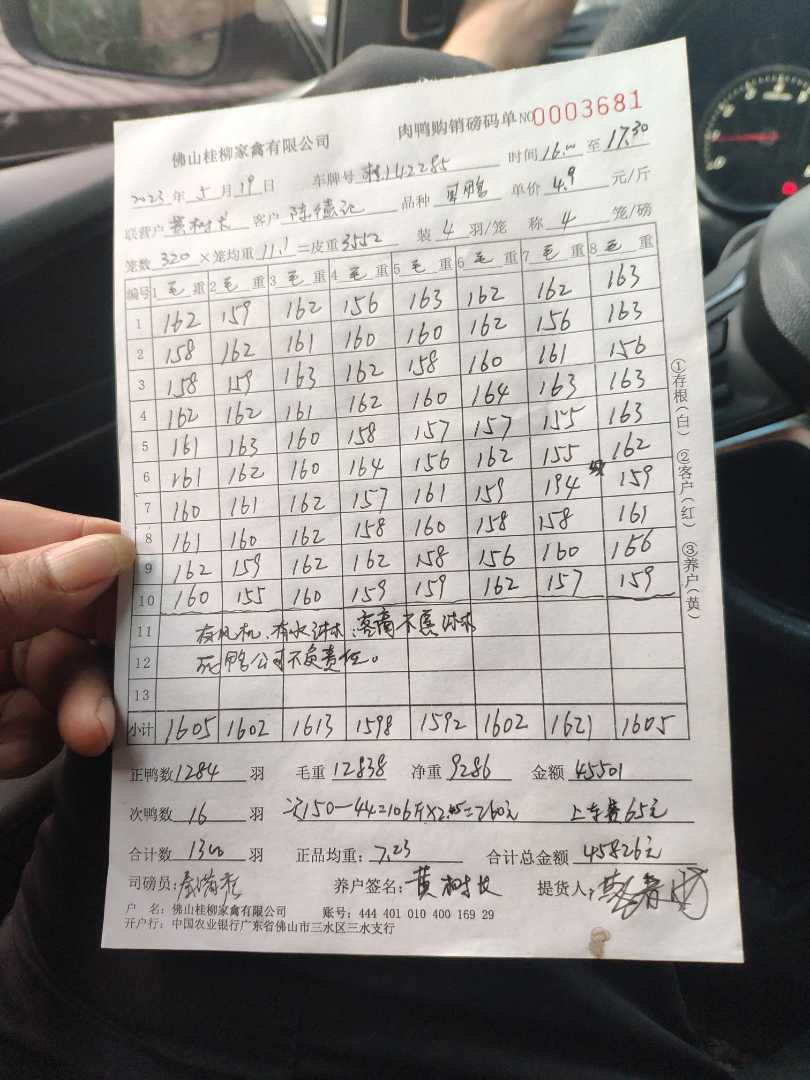 佛山桂柳家禽有限公司 肉鸭购销磅码单 NO 0003681
2023年5月19日 车牌号 桂142285 时间16.00至17.30
联营户 黄树长 客户 陈德记 品种 鸭 单价 4.9 元/斤
笼数 320 ×笼均重 11.1 =皮重 3552 装 4 羽/笼 称 4 笼/磅
编号 1 毛重 2 毛重 3 毛重 4 毛重 5 毛重 6 毛重 7 毛重 8 毛重
1 162 159 162 156 163 162 162 163
2 158 162 161 160 160 162 156 163
3 158 159 163 162 158 160 161 156
4 162 162 161 162 160 164 163 163
5 161 163 160 158 157 157 155 163
6 161 162 160 164 156 162 155 162
7 160 161 162 157 161 159 194 159
8 161 160 162 158 160 158 158 161
9 162 159 162 162 158 156 160 156
10 160 155 160 159 159 162 157 159
11 有风机、有水淋、客商不淋
12 死鸭公司不负责任。
13
小计 1605 1602 1613 1598 1592 1602 1621 1605
正鸭数 1284 羽 毛重 12838 净重 9286 金额 45501
次鸭数 16 羽 次150-44=106斤×2.45=260元 上车费65元
合计数 1300 羽 正品均重: 7.23 合计总金额 45826元
司磅员: 养户签名: 黄树长 提货人:
户 名: 佛山桂柳家禽有限公司 账号: 444 401 010 400 169 29
开户行: 中国农业银行广东省佛山市三水区三水支行
①存根(白) ②客户(红) ③养户(黄)